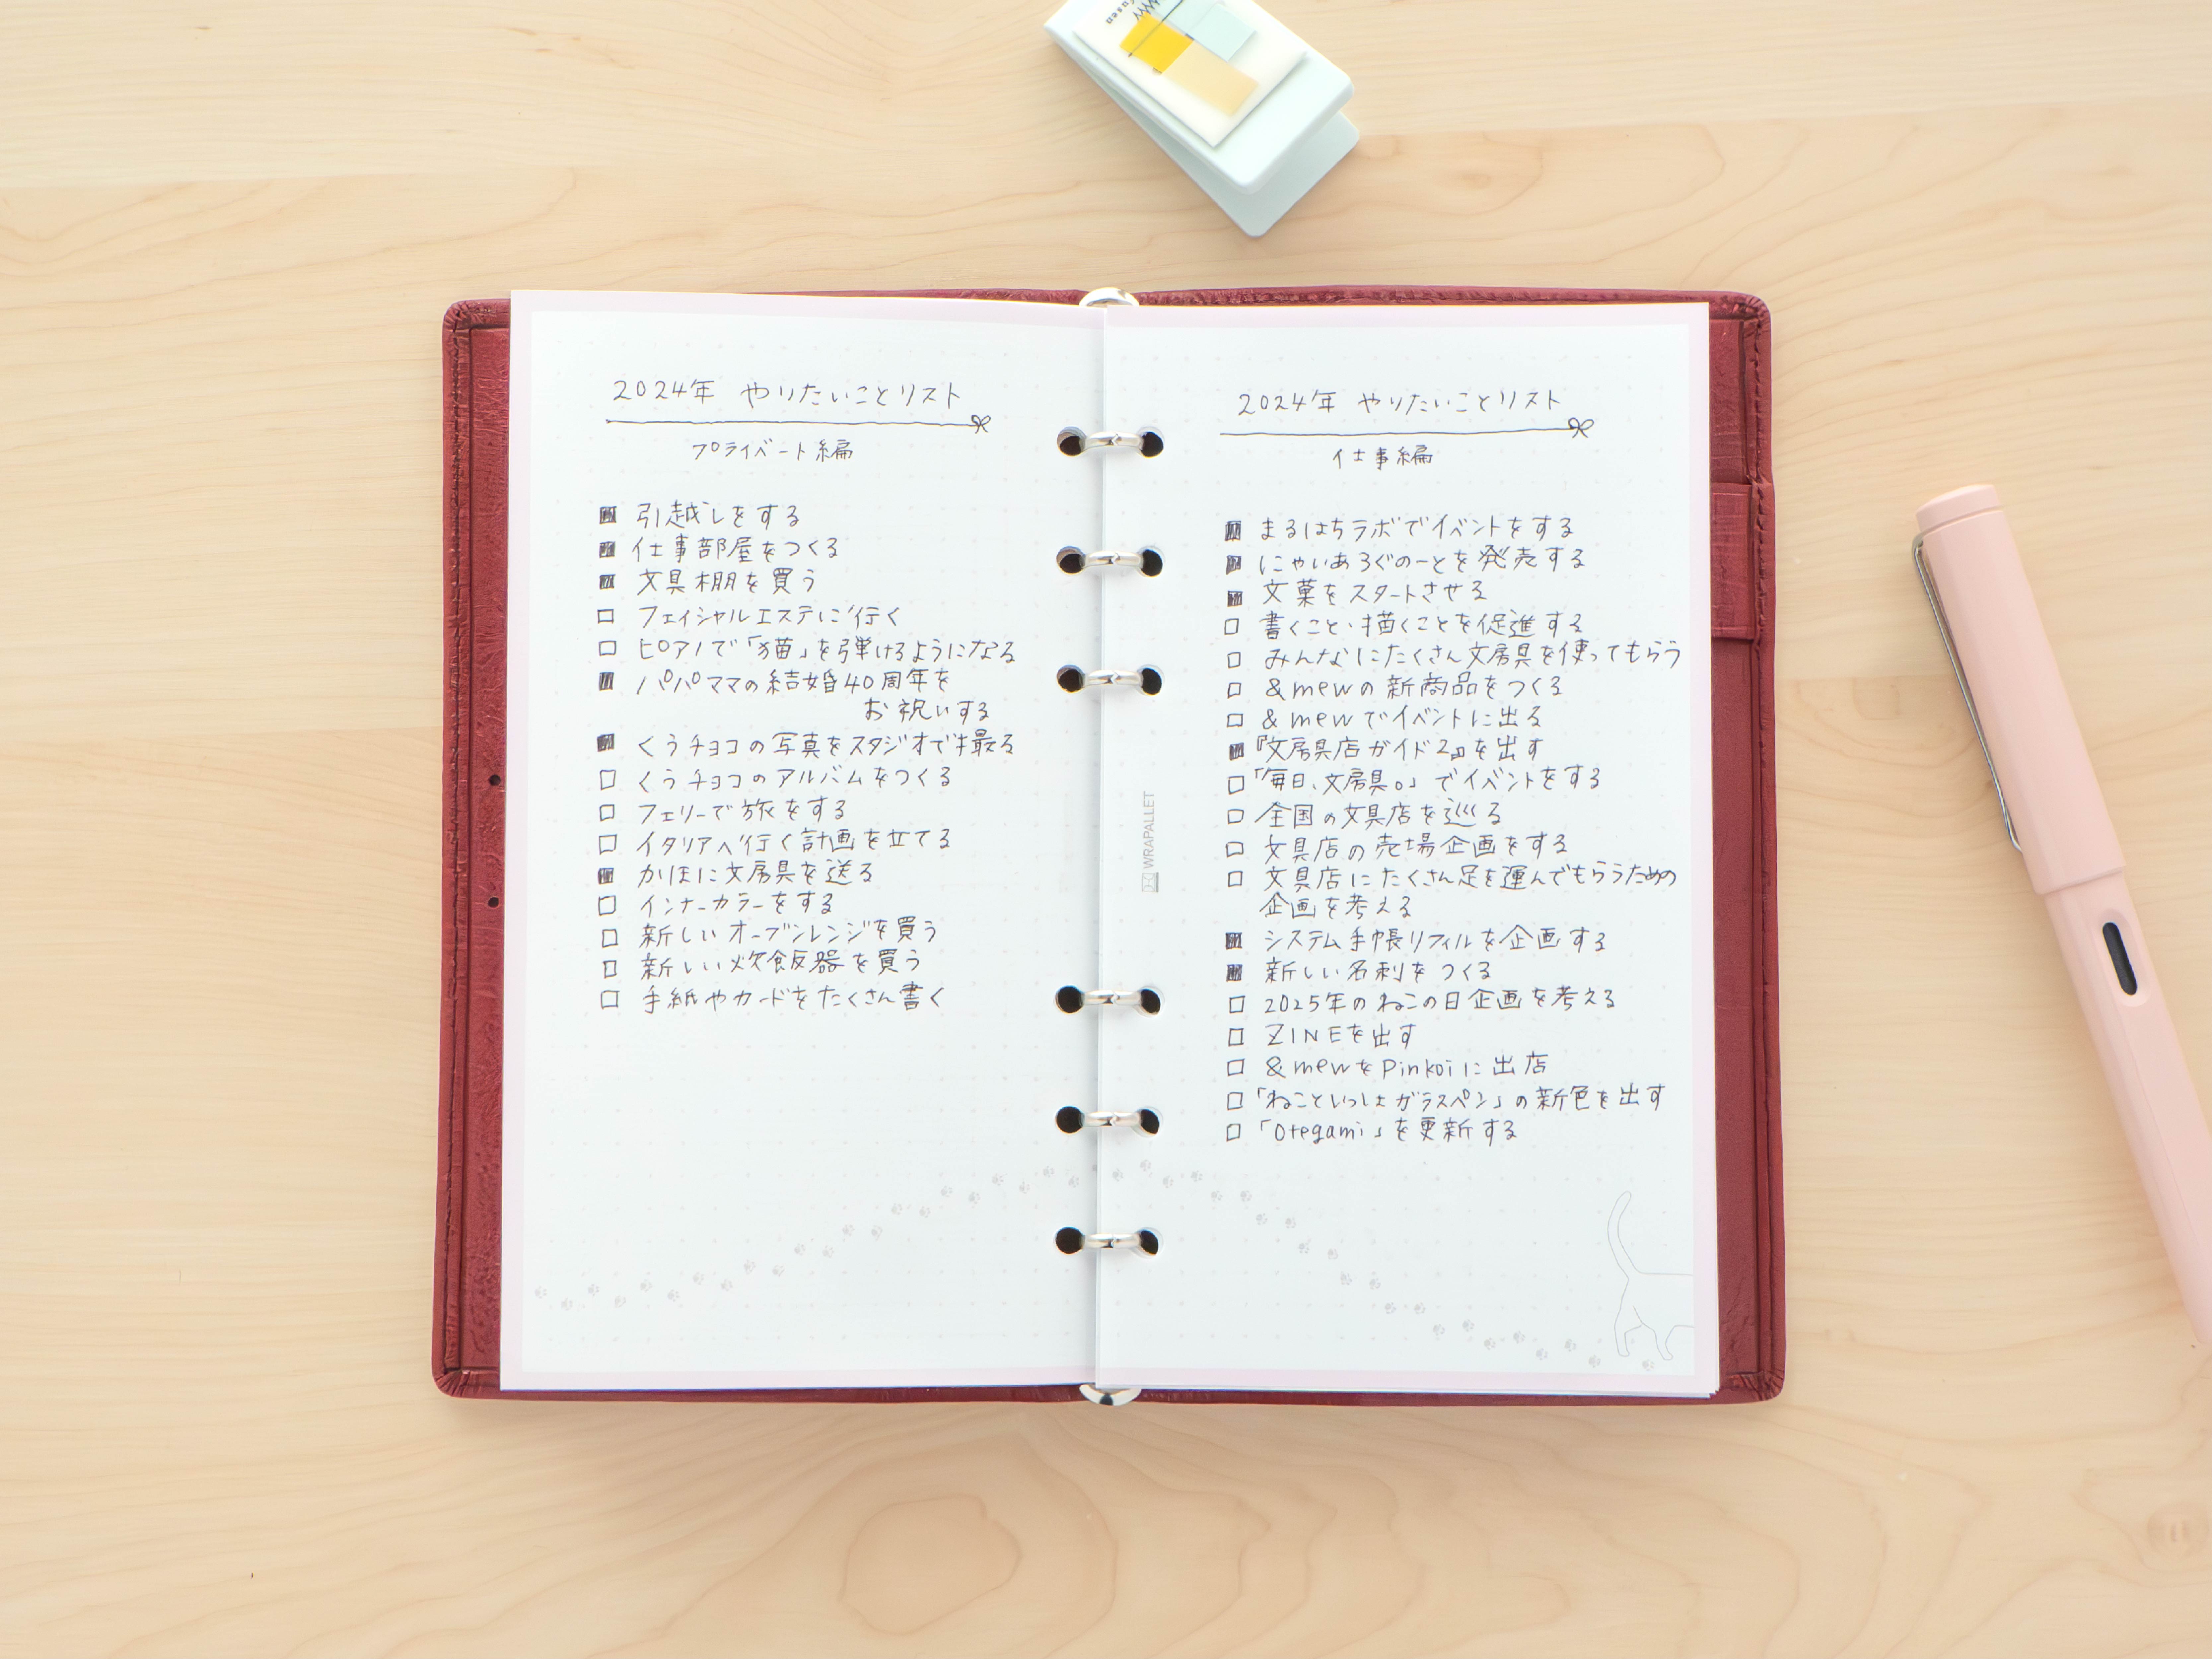 2024年 やりたいことリスト
プライベート編
■ 引越しをする
■ 仕事部屋をつくる
■ 文具棚を買う
□ フェイシャルエステに行く
□ ピアノで「猫」を弾けるようになる
■ パパママの結婚40周年を
お祝いする
■ くうチョコの写真をスタジオで撮る
□ くうチョコのアルバムをつくる
□ フェリーで旅をする
□ イタリアへ行く計画を立てる
■ かほに文房具を送る
□ インナーカラーをする
□ 新しいオーブンレンジを買う
□ 新しい炊飯器を買う
□ 手紙やカードをたくさん書く
2024年 やりたいことリスト
仕事編
■ まるはちラボでイベントをする
■ にゃいあろぐのーとを発売する
■ 文葉をスタートさせる
□ 書くこと・描くことを促進する
□ みんなにたくさん文房具を使ってもらう
□ &mewの新商品をつくる
□ &mewでイベントに出る
■『文房具店ガイド2』を出す
□「毎日、文房具。」でイベントをする
□ 全国の文具店を巡る
□ 文具店の売場企画をする
□ 文具店にたくさん足を運んでもらうための
企画を考える
■ システム手帳リフィルを企画する
■ 新しい名刺をつくる
□ 2025年のねこの日企画を考える
□ ZINEを出す
□ &mewをPinkoiに出店
□「ねこといっしょガラスペン」の新色を出す
□「Otegami」を更新する
WRAPALLET